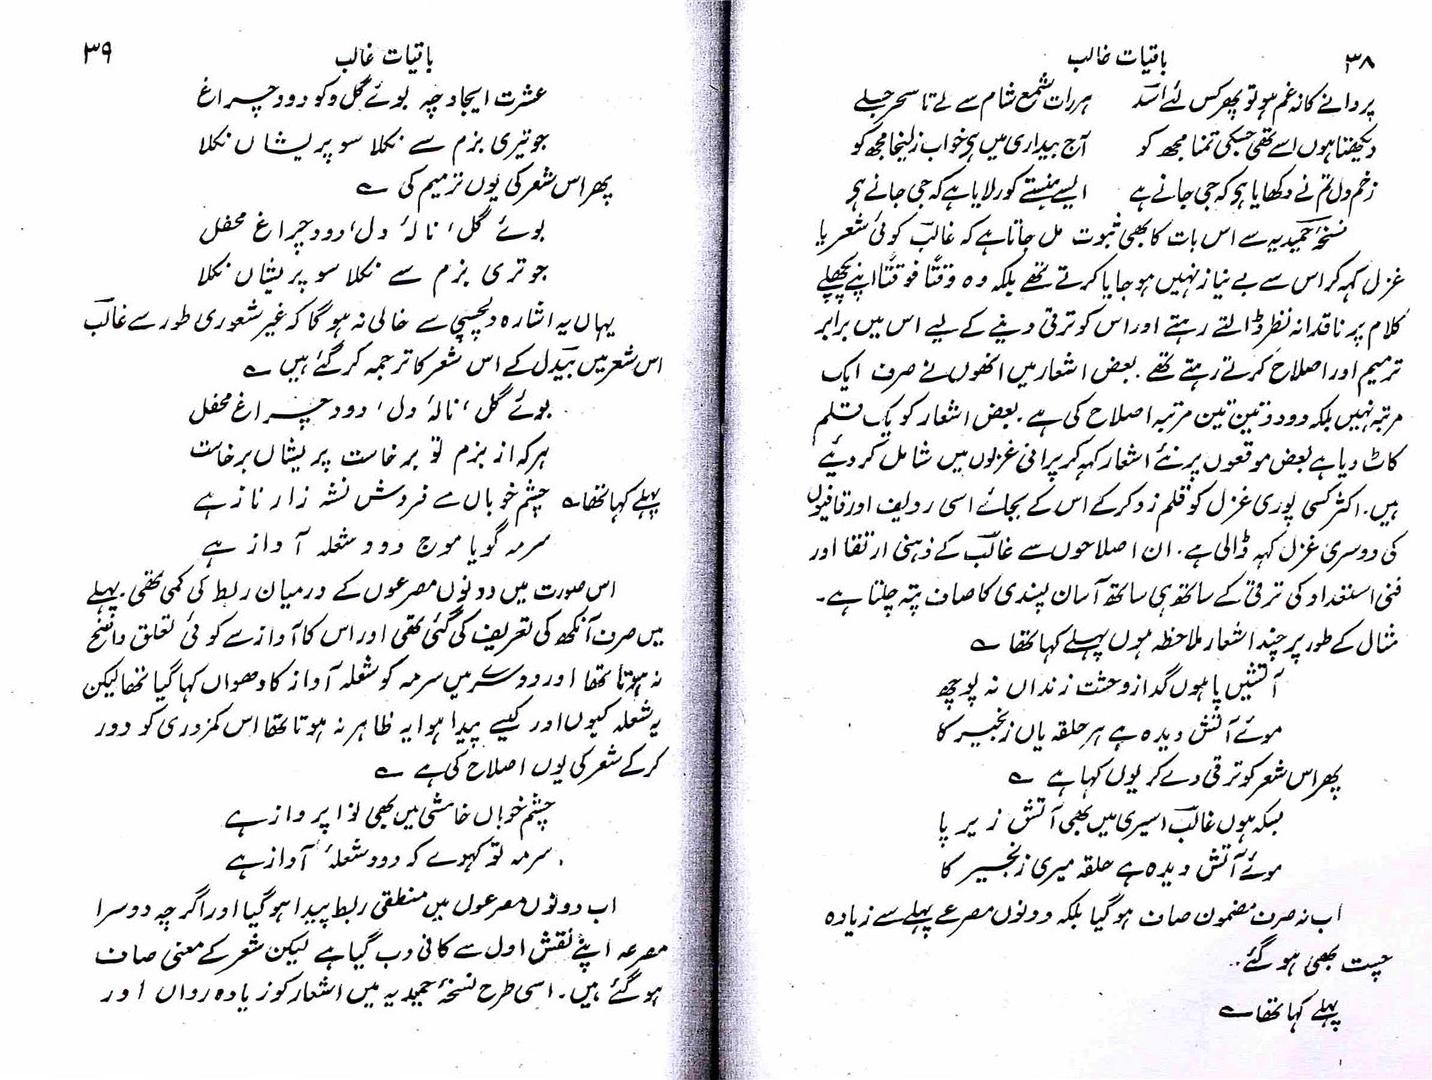 ۳۸
باقیات غالب
پروانے کا نہ غم ہو تو پھر کس لئے اسدؔ ہر رات شمع شام سے لے تا سحر جلے
دیکھتا ہوں اسے تھی جسکی تمنا مجھ کو آج بیداری میں ہی خواب زلیخا مجھ کو
زخم دل تم نے دکھایا ہی کہ جی جانے ہے ایسے ہنستے کو رلایا ہے کہ جی جانے ہی
نسخۂ حمیدیہ سے اس بات کا بھی ثبوت مل جاتا ہے کہ غالبؔ کوئی شعر یا
غزل کہہ کر اس سے بے نیاز نہیں ہو جایا کرتے تھے بلکہ وہ وقتاً فوقتاً اپنے پچھلے
کلام پر ناقدانہ نظر ڈالتے رہتے اور اس کو ترقی دینے کے لیے اس میں برابر
ترمیم اور اصلاح کرتے رہتے تھے۔ بعض اشعار میں انھوں نے صرف ایک
مرتبہ نہیں بلکہ دو دو تین تین مرتبہ اصلاح کی ہے۔ بعض اشعار کو یک قلم
کاٹ دیا ہے بعض موقعوں پر نئے اشعار کہہ کر پرانی غزلوں میں شامل کر دیئے
ہیں۔ اکثر کسی پوری غزل کو قلم زد کر کے اس کے بجائے اسی ردیف اور قافیوں
کی دوسری غزل کہہ ڈالی ہے۔ ان اصلاحوں سے غالبؔ کے ذہنی ارتقا اور
فنی استعداد کی ترقی کے ساتھ ہی ساتھ آسان پسندی کا صاف پتہ چلتا ہے۔
مثال کے طور پر چند اشعار ملاحظہ ہوں پہلے کہا تھا ؎
آتشیں پا ہوں گداز وحشت زنداں نہ پوچھ
موئے آتش دیدہ ہے ہر حلقہ یاں زنجیر کا
پھر اس شعر کو ترقی دے کر یوں کہا ہے ؎
بسکہ ہوں غالبؔ اسیری میں بھی آتش زیر پا
موئے آتش دیدہ ہے حلقہ میری زنجیر کا
اب نہ صرف مضمون صاف ہو گیا بلکہ دونوں مصرعے پہلے سے زیادہ
چست بھی ہو گئے۔
پہلے کہا تھا ؎
باقیات غالب
۳۹
عشرت ایجاد چہ بوئے گل و کو دود چراغ
جو تیری بزم سے نکلا سو پریشاں نکلا
پھر اس شعر کی یوں ترمیم کی ؎
بوئے گل، نالۂ دل، دود چراغ محفل
جو تری بزم سے نکلا سو پریشاں نکلا
یہاں یہ اشارہ دلچسپی سے خالی نہ ہو گا کہ غیر شعوری طور سے غالبؔ
اس شعر میں بیدلؔ کے اس شعر کا ترجمہ کر گئے ہیں ؎
بوئے گل، نالۂ دل، دود چراغ محفل
ہر کہ از بزم تو برخاست پریشاں برخاست
پہلے کہا تھا ؎ چشم خوباں مے فروش نشہ زار ناز ہے
سرمہ گویا موج دود شعلہ آواز ہے
اس صورت میں دونوں مصرعوں کے درمیان ربط کی کمی تھی۔ پہلے
میں صرف آنکھ کی تعریف کی گئی تھی اور اس کا آواز سے کوئی تعلق واضح
نہ ہوتا تھا اور دوسرے میں سرمہ کو شعلہ آواز کا دھواں کہا گیا تھا لیکن
یہ شعلہ کیوں اور کیسے پیدا ہوا یہ ظاہر نہ ہوتا تھا اس کمزوری کو دور
کر کے شعر کی یوں اصلاح کی ہے ؎
چشم خوباں خامشی میں بھی نوا پرواز ہے
سرمہ تو کہوے کہ دود شعلۂ آواز ہے
اب دونوں مصرعوں میں منطقی ربط پیدا ہو گیا اور اگرچہ دوسرا
مصرعہ اپنے نقش اول سے کافی دب گیا ہے لیکن شعر کے معنی صاف
ہو گئے ہیں۔ اسی طرح نسخۂ حمیدیہ میں اشعار کو زیادہ رواں اور